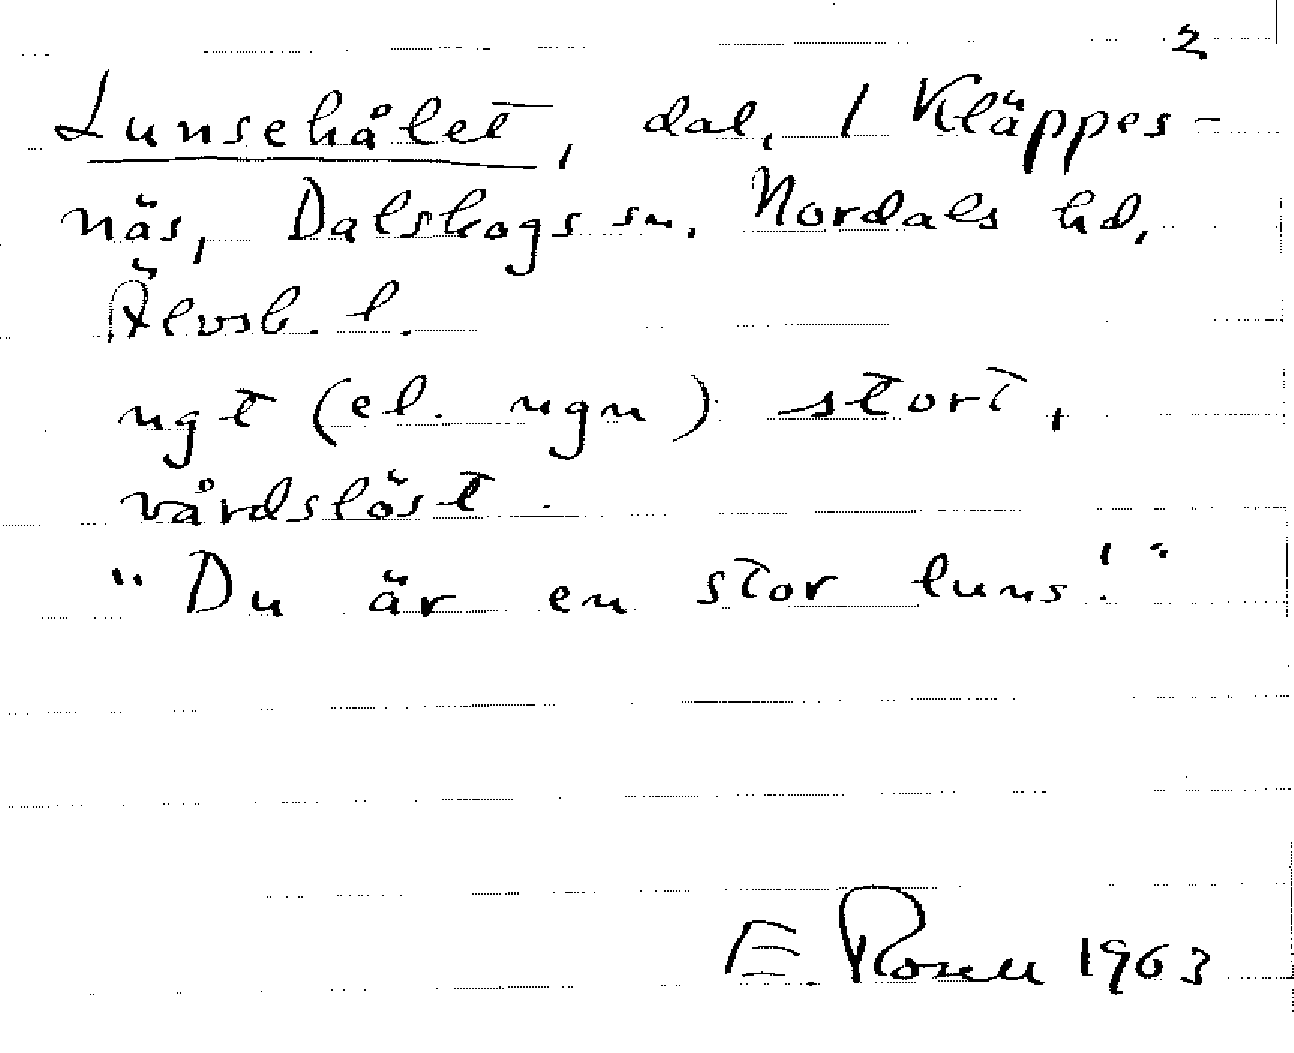 2
Lunsehålet, dal, 1 Kläppes-
näs, Dalskogs sn. Nordals hd,
Älvsb. l.
ngt (el. ngn) stort,
vårdslöst.
"Du är en stor luns!"
E. Rosell 1963